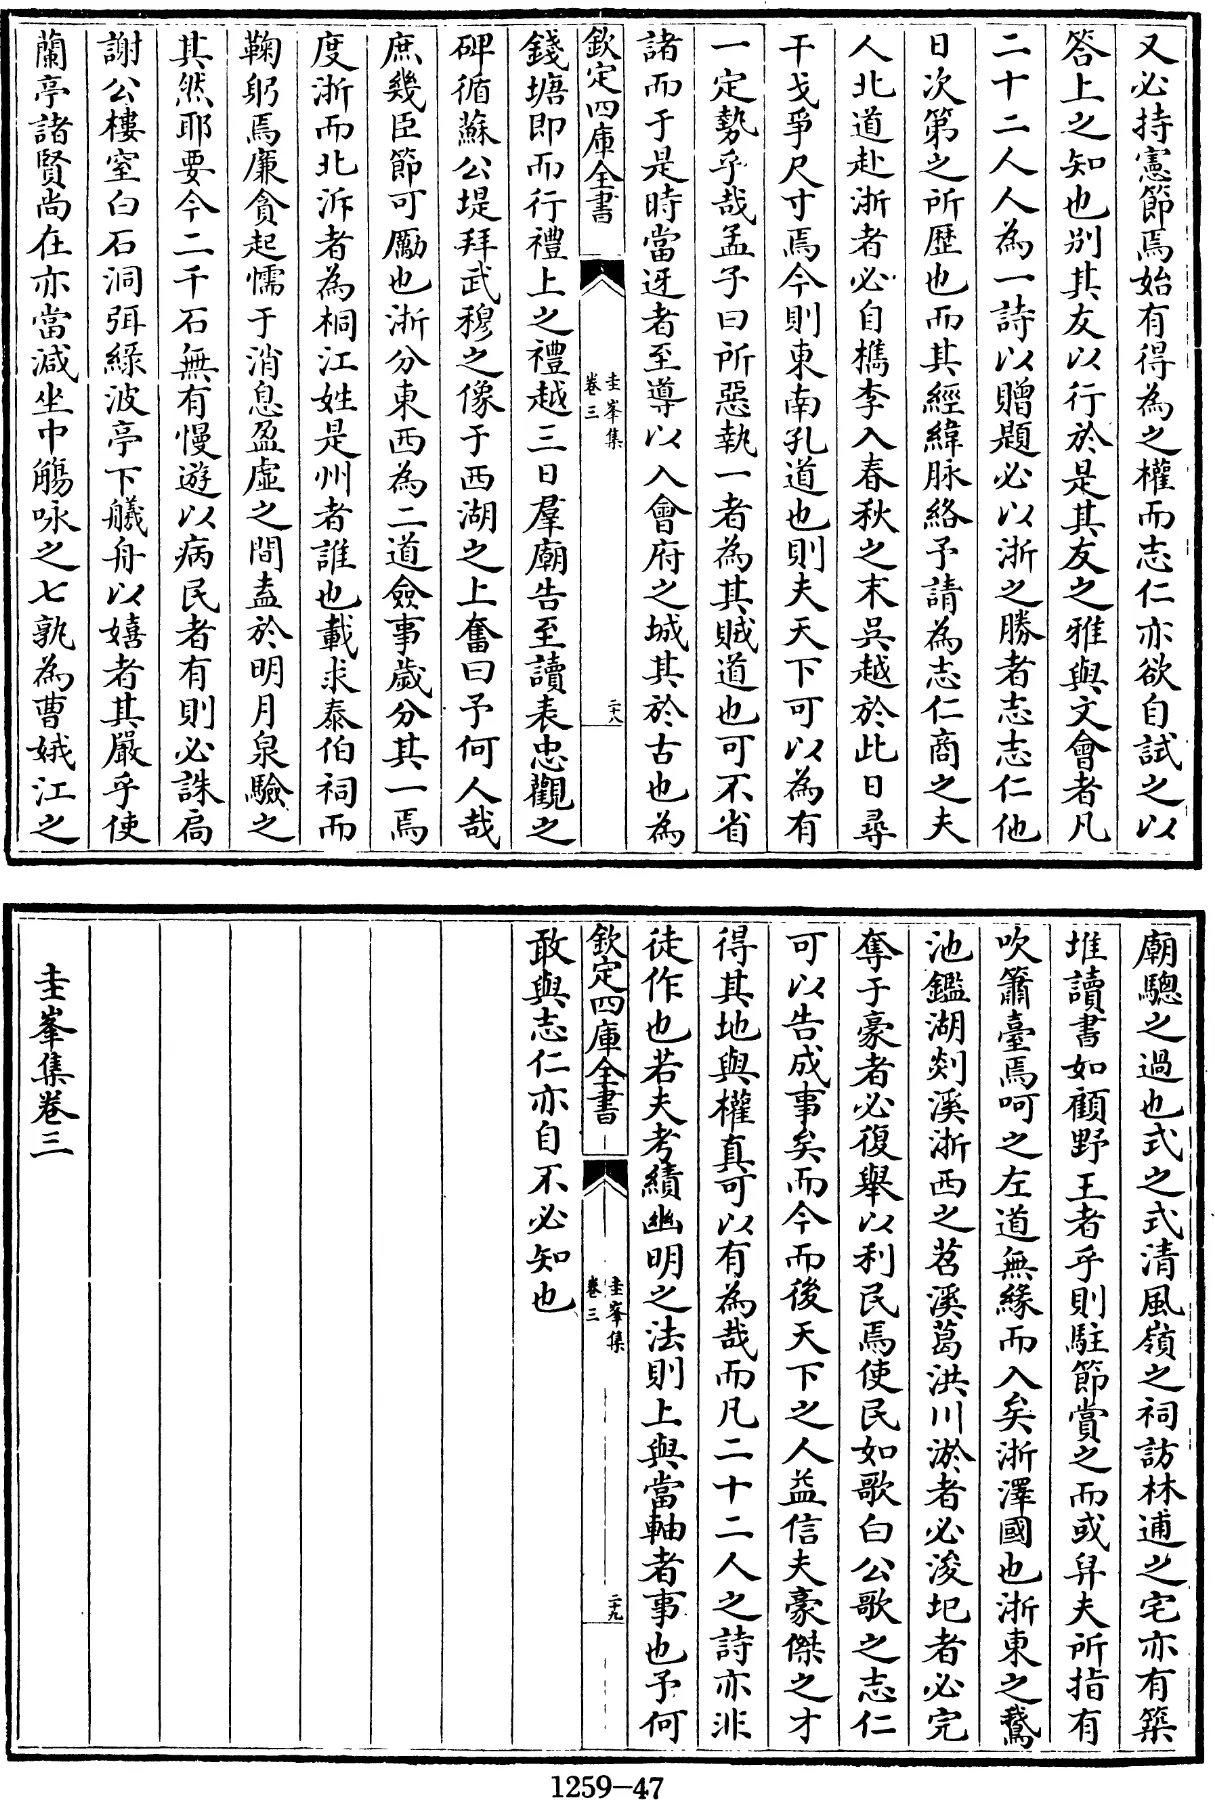 又必持憲節焉始有得為之權而志仁亦欲自試之以
答上之知也别其友以行於是其友之雅與文會者凡
二十二人人為一詩以贈題必以浙之勝者志志仁他
日次第之所歷也而其經緯脉絡予請為志仁商之夫
人北道赴浙者必自檇李入春秋之末吳越於此日尋
干戈爭尺寸焉今則東南孔道也則夫天下可以為有
一定勢乎哉孟子曰所惡執一者為其賊道也可不省
諸而于是時當迓者至導以入會府之城其於古也為
欽定四庫全書
圭峯集
卷三
二十八
錢塘即而行禮上之禮越三日羣廟告至讀表忠觀之
碑循蘇公堤拜武穆之像于西湖之上奮曰予何人哉
庶幾臣節可勵也浙分東西為二道僉事歲分其一焉
度浙而北泝者為桐江姓是州者誰也載求泰伯祠而
鞠躬焉廉貪起懦于消息盈虛之間盍於明月泉驗之
其然耶要今二千石無有慢遊以病民者有則必誅扃
謝公樓窒白石洞弭綠波亭下艤舟以嬉者其嚴乎使
蘭亭諸賢尚在亦當減坐中觴咏之七孰為曹娥江之
廟驄之過也式之式清風嶺之祠訪林逋之宅亦有築
堆讀書如顧野王者乎則駐節賞之而或舁夫所指有
吹簫臺焉呵之左道無緣而入矣浙澤國也浙東之鵞
池鑑湖剡溪浙西之苕溪葛洪川淤者必浚圮者必完
奪于豪者必復舉以利民焉使民如歌白公歌之志仁
可以告成事矣而今而後天下之人益信夫豪傑之才
得其地與權真可以有為哉而凡二十二人之詩亦非
徒作也若夫考績幽明之法則上與當軸者事也予何
欽定四庫全書
圭峯集
卷三
二十九
敢與志仁亦自不必知也
圭峯集卷三
1259-47